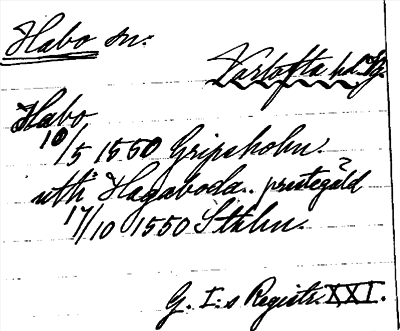 Habo sn.
Vartofta hd. Vg.
Habo
10/5 1550 Gripsholm.
utti Hagaboda.. prestegäld
17/10 1550 Sthlm.
G. I:s Registr. XXI.